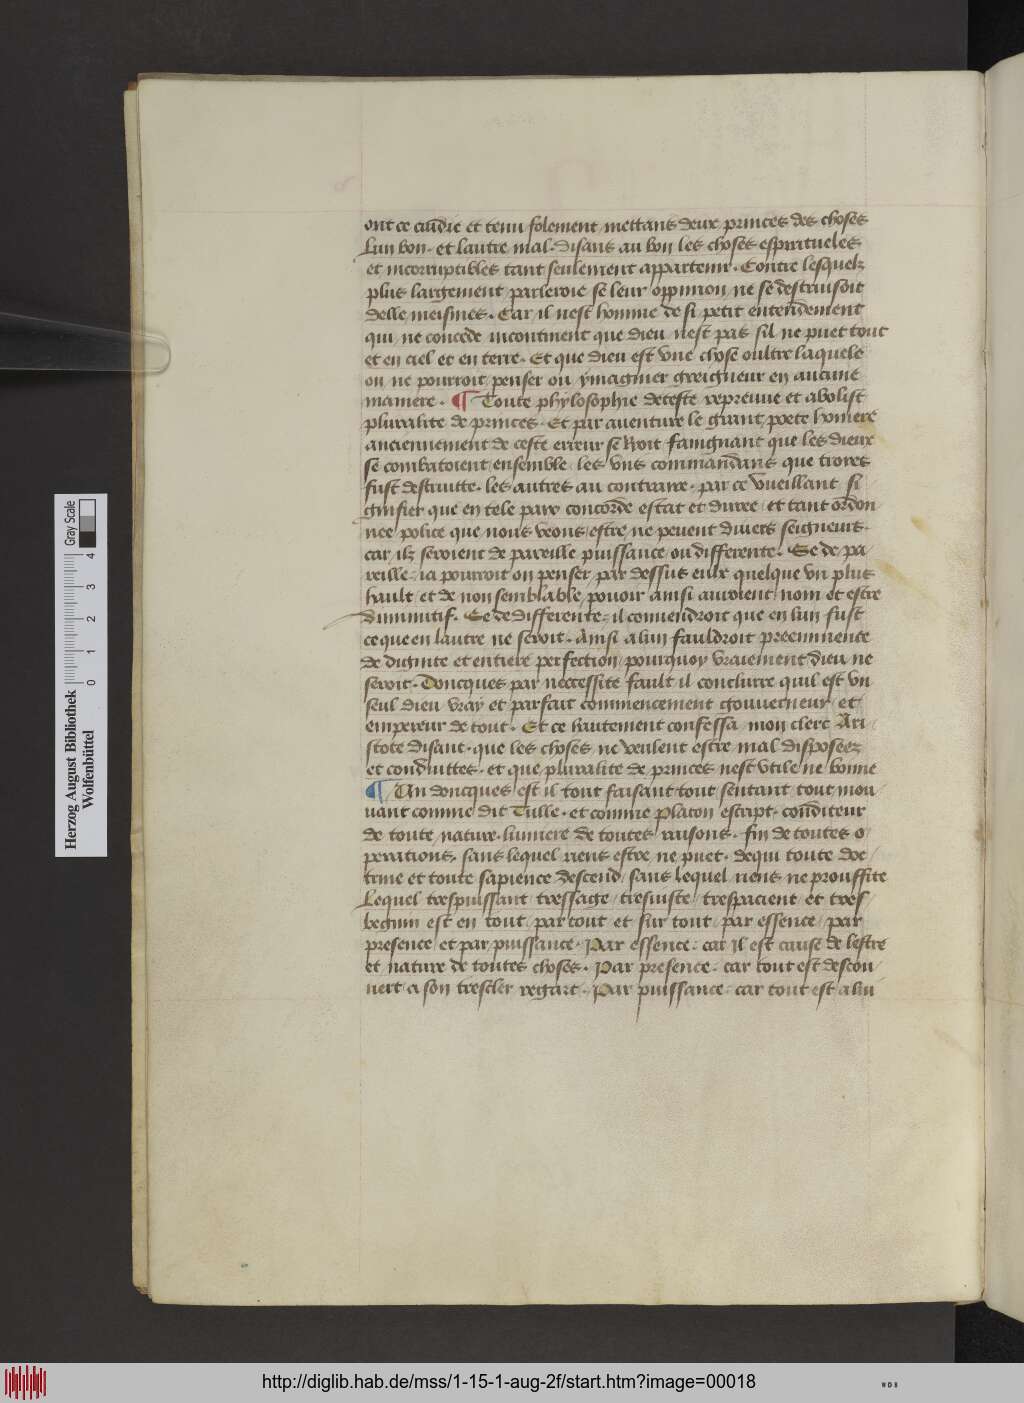 ont ce cuidie et tenu folement mettans deux princes des choses
Lun bon · et lautre mal · disans au bon les choses espirituelles
et incorruptibles tant seulement appartenir · Contre lesquelz
plus largement parleroie se leur oppinion ne se destruisoit
delle meismes · Car il nest homme de si petit entendement
qui ne concede incontinent que dieu nest pas sil ne puet tout
et en ciel et en terre · Et que dieu est vne chose oultre laquele
on ne pourroit penser ou ymaginer greigneur en aucune
maniere · ¶ Toute phylosophie deteste repreuue et abolist
pluralite de princes · Et par auenture le grant poete homere
anciennement de ceste erreur se faingnant que les dieux
se combatoient ensemble · les vns commandans que troyes
fust destruitte · les autres au contraire · par ce vueillant si
gnifier que en tele paix concorde estat et duree · et tant ordon
nee police que nous veons estre ne peuent diuers seigneurs ·
car ilz seroient de pareille puissance ou differente · Se de pa
reille · ia pourroit on penser par dessus eulx quelque vn plus
hault et de non semblable pouoir ainsi auroient nom et estre
diminutif · Se de differente · il conuendroit que en lun fust
ce que en lautre ne seroit · Ainsi a lun fauldroit preeminente
de dignite et entiere perfection pourquoy vraiement dieu ne
seroit · Doncques par neccessite fault il conclurre quil est vn
seul dieu vray et parfait commencement gouuerneur et
empereur de tout · Et ce hautement confessa mon clerc Ari
stote disant · que les choses ne veulent estre mal disposeez
et conduittes · et que pluralite de princes nest vtile ne bonne
¶ Vn doncques est il tout faisant tout sentant tout mou
uant comme dit Tulle · et comme Platon escript · conditeur
de toute nature · lumiere de toutes raisons · fin de toutes o
perations · sans lequel riens estre ne puet · de qui toute doc
trine et toute sapience descend · sans lequel riens ne prouffite
Lequel trespuissant tressage tresiuste trespacient et tres
begnin est en tout par tout et sur tout par essence par
presence et par puissance · Par essence · car il est cause de lestre
et nature de toutes choses · Par presence · car tout est descou
uert a son trescler regart · Par puissance · car tout est a lui
Herzog August Bibliothek
Wolfenbüttel
0 1 2 3 4
Gray Scale
http://diglib.hab.de/mss/1-15-1-aug-2f/start.htm?image=00018
WDB